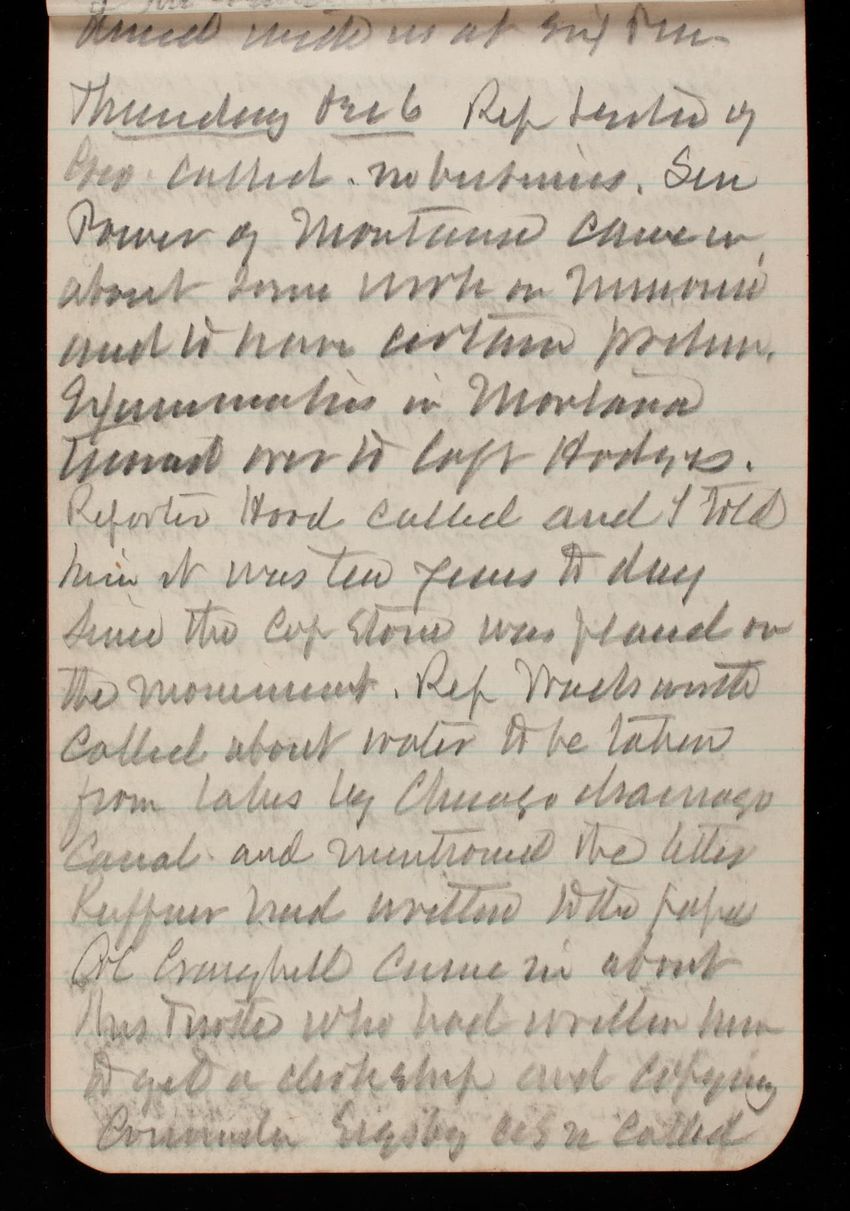 dined with us at six P.m.
Thursday Dec 6 Rep Lester of
Geo. called. no business. Sen
Power of Montana came in
about some work on Missouri
and to have certain prelim.
Examination in Montana
turned over to Capt Hodges.
Reporter Hood called and I told
him it was ten years to day
since the Cap stone was placed on
the monument. Rep Wadsworth
called about water to be taken
from lakes by Chicago drainage
Canal and mentioned the letter
Ruffner had written to the paper
Col Craighill came in about
Mrs who had written him
to get a clerkship and copying
Commander Sigsby USN called